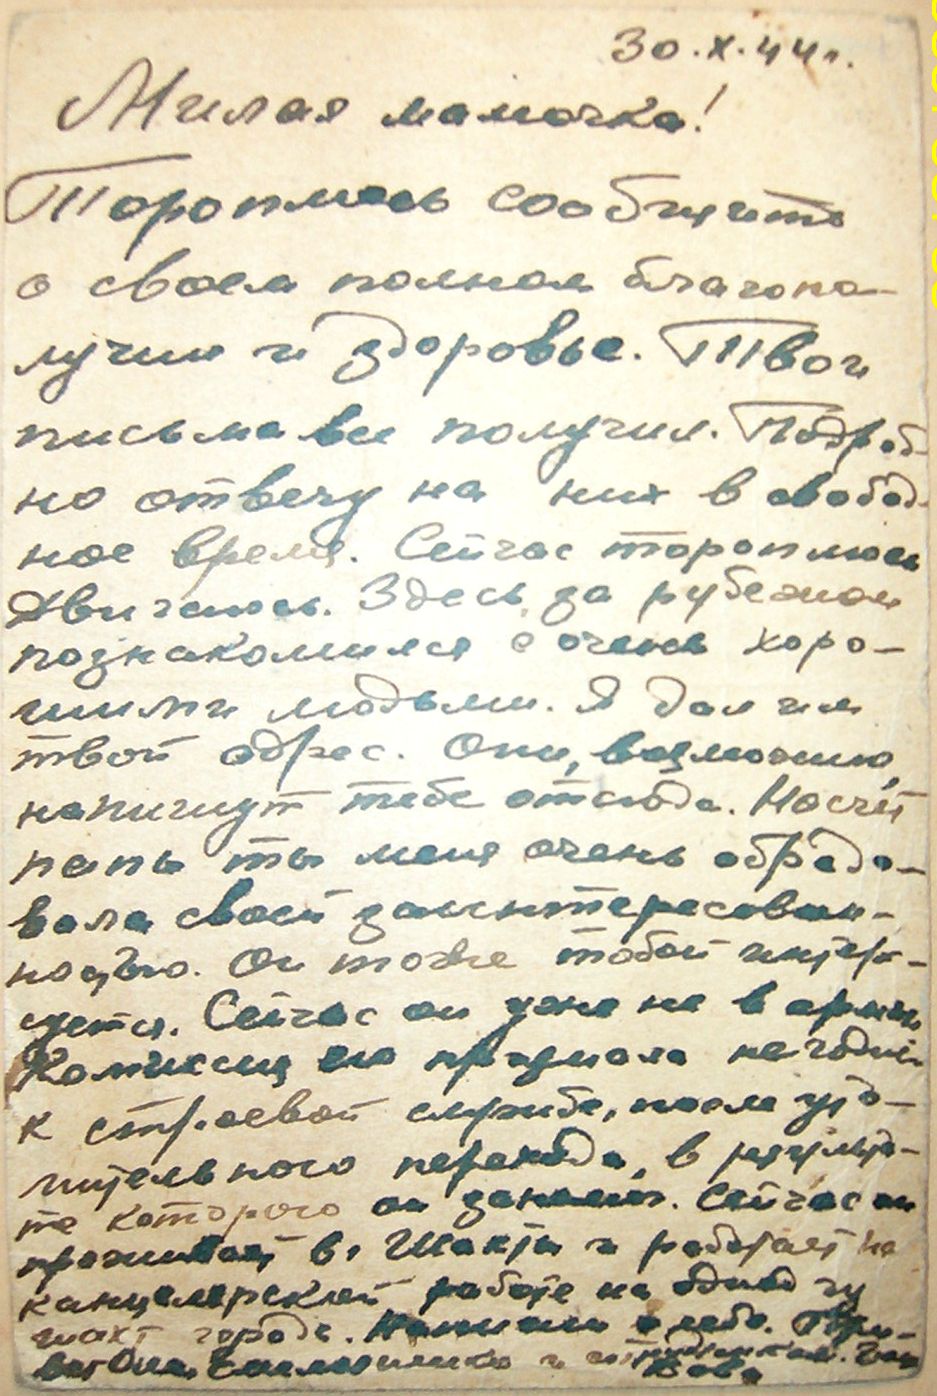 30.X.44г.
Милая мамочка!
Тороплюсь сообщить
о своем полном благопо-
лучии и здоровье. Твои
письма все получил. Подроб-
но отвечу на них в свобод-
ное время. Сейчас тороплюсь
Движемся. Здесь, за рубежом
познакомился с очень хоро-
шими людьми. Я дал им
твой адрес. Они, возможно,
напишут тебе отсюда. Насчет
папы ты меня очень обрадо-
вала своей заинтересован-
ностью. Он тоже тобой интере-
суется. Сейчас он уже не в армии
Комиссия его признала негодным
к строевой службе, после уто-
мительного перехода, в результа-
те которого он заболел. Сейчас он
проживает в г. Шахты и работает на
канцелярской работе на одной из
шахт города. Напиши о себе. При-
вет и
Вова